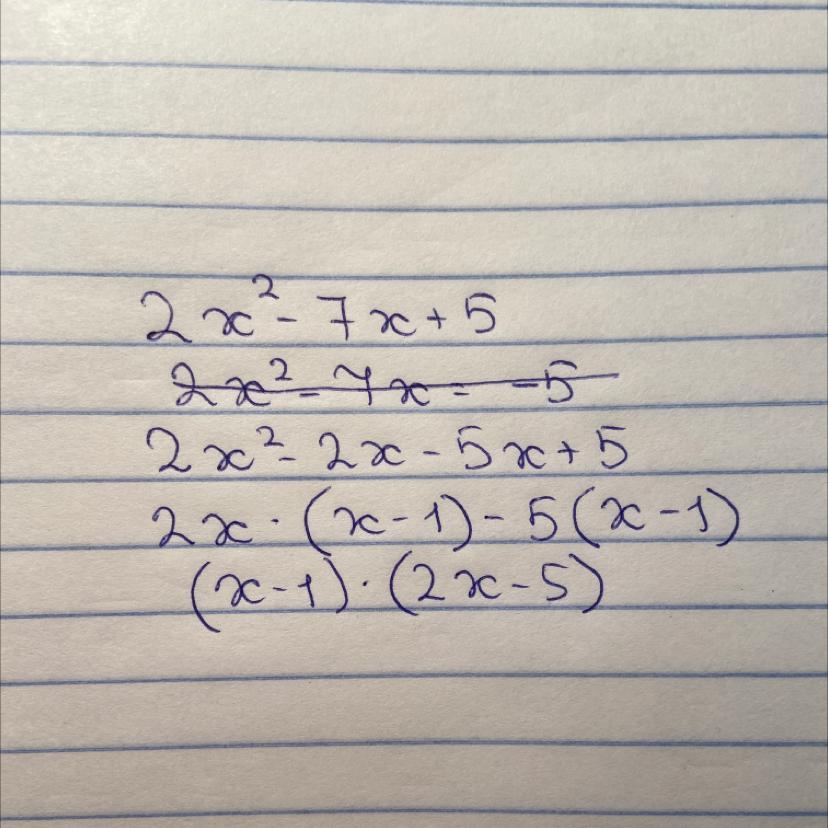 2x² - 7x + 5
2x² - 7x = -5
2x² - 2x - 5x + 5
2x · (x - 1) - 5(x - 1)
(x - 1) · (2x - 5)